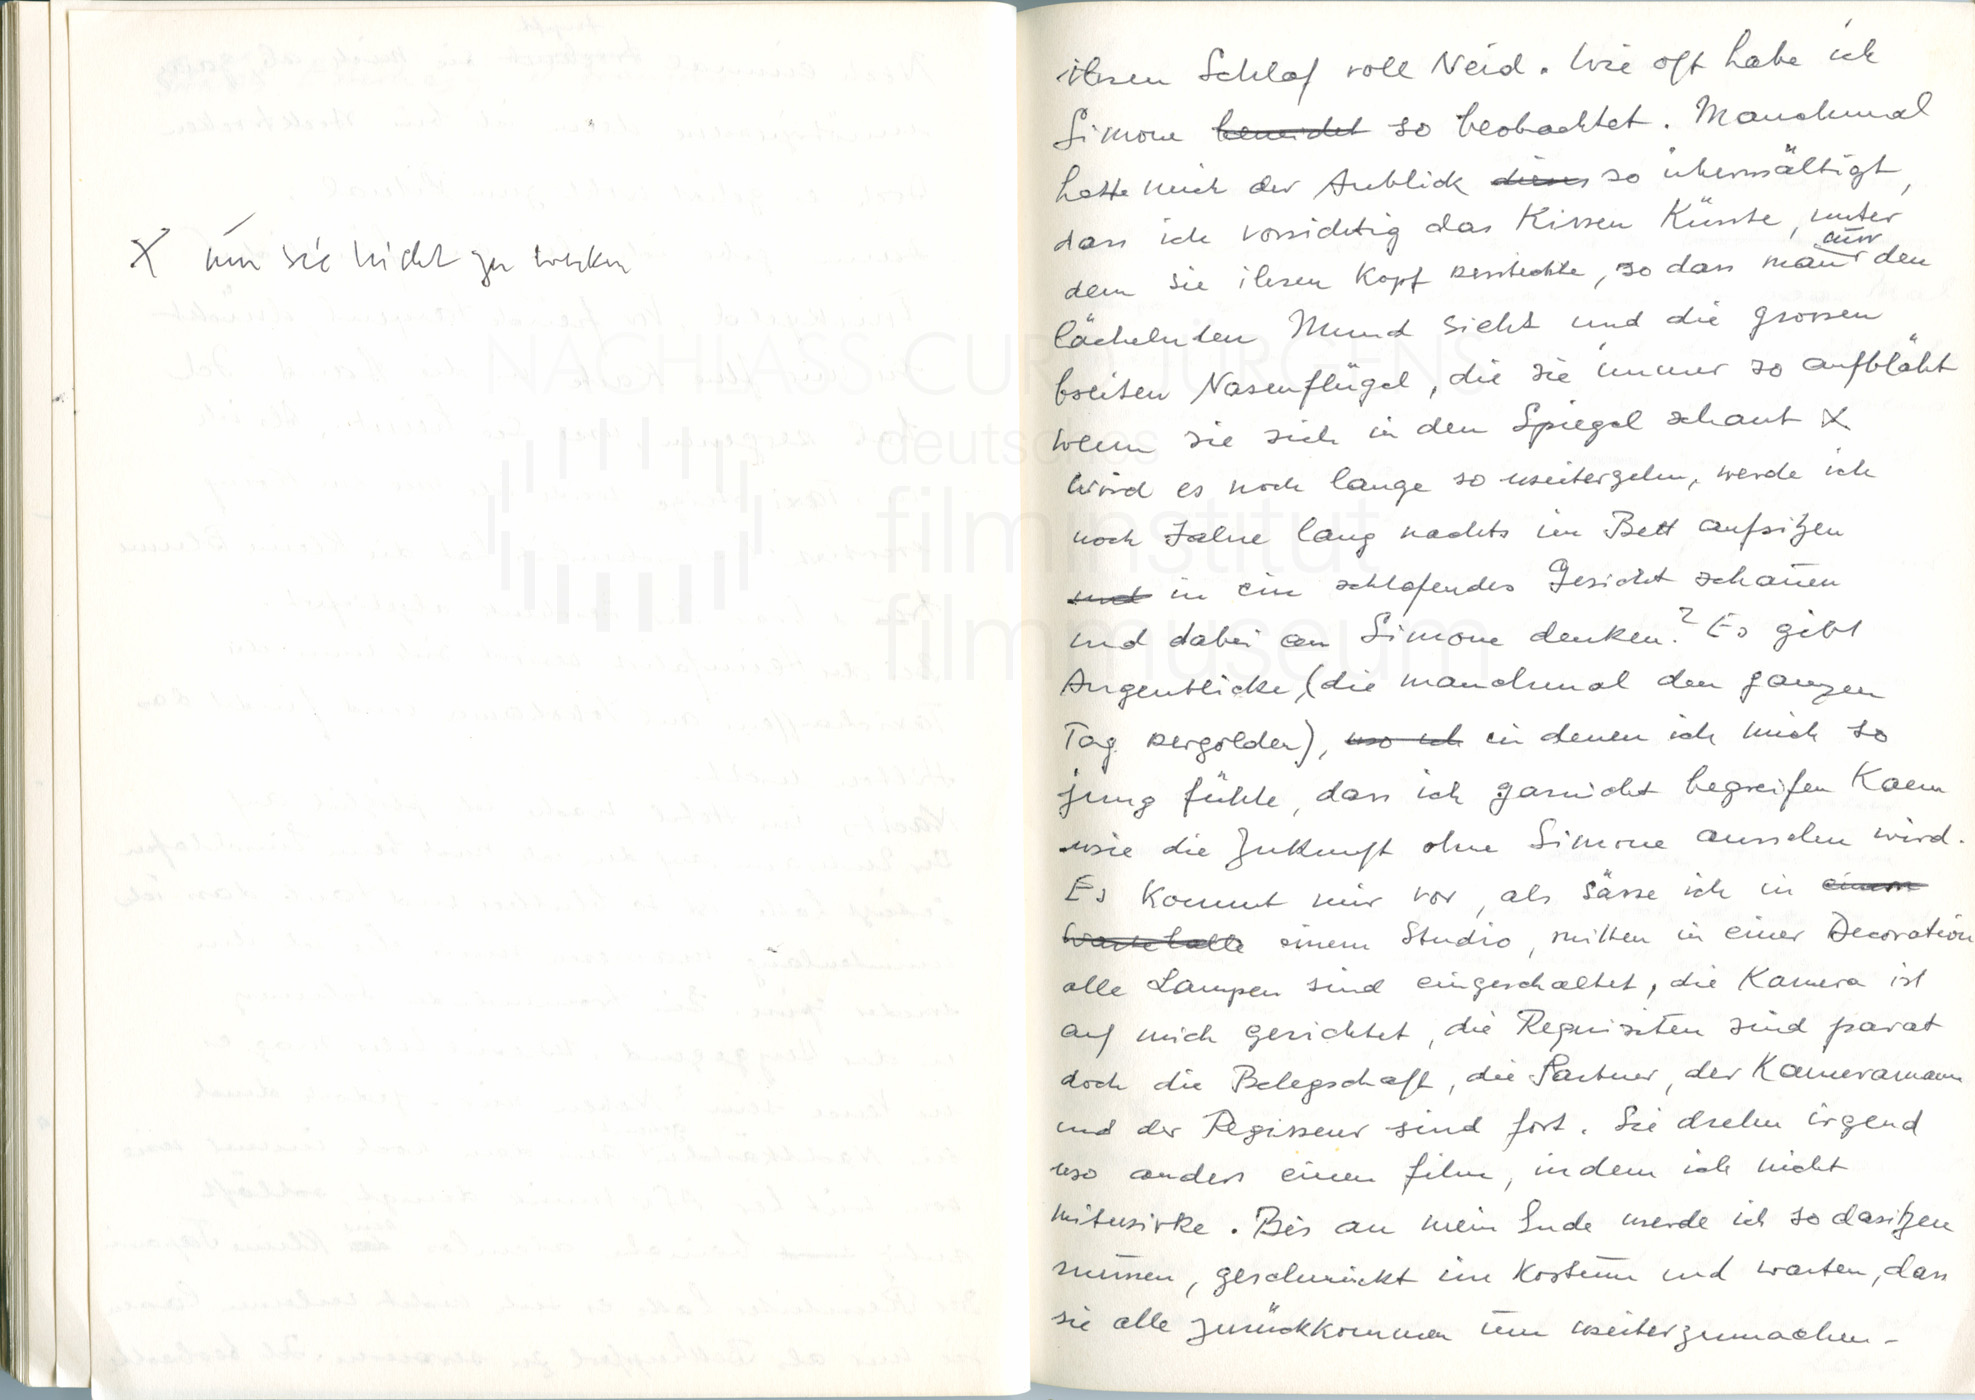 X um sie nicht zu wecken
ihren Schlaf voll Neid. Wie oft habe ich
Simone beneidet so beobachtet. Manchmal
hatte mich der Anblick dieses so überwältigt,
dass ich vorsichtig das Kissen Küsste, unter
nur
dem sie ihren Kopf versteckte, so dass man den
lächelnden Mund sieht und die grossen
breiten Nasenflügel, die sie immer so aufbläht
wenn sie sich in den Spiegel schaut X
Wird es noch lange so weitergehn, werde ich
noch Jahre lang nachts im Bett aufsitzen
und in ein schlafendes Gesicht schauen
und dabei an Simone denken? Es gibt
Augenblicke, (die manchmal den ganzen
Tag vergolden), wo ich in denen ich mich so
jung fühle, dass ich garnicht begreifen Kann
wie die Zukunft ohne Simone aussehen wird.
Es Kommt mir vor, als sässe ich in einer
Wartehalle einem Studio, mitten in einer Decoration
alle Lampen sind eingeschaltet, die Kamera ist
auf mich gerichtet, die Requisiten sind parat
doch die Belegschaft, die Partner, der Kameramann
und der Regisseur sind fort. Sie drehn irgend
wo anders einen Film, indem ich nicht
mitwirke. Bis an mein Ende werde ich so dasitzen
müssen, geschminkt im Kostüm und warten, dass
sie alle zurückkommen um weiterzumachen-
NACHLASS CURD JÜRGENS
deutsches
filminstitut
filmmuseum